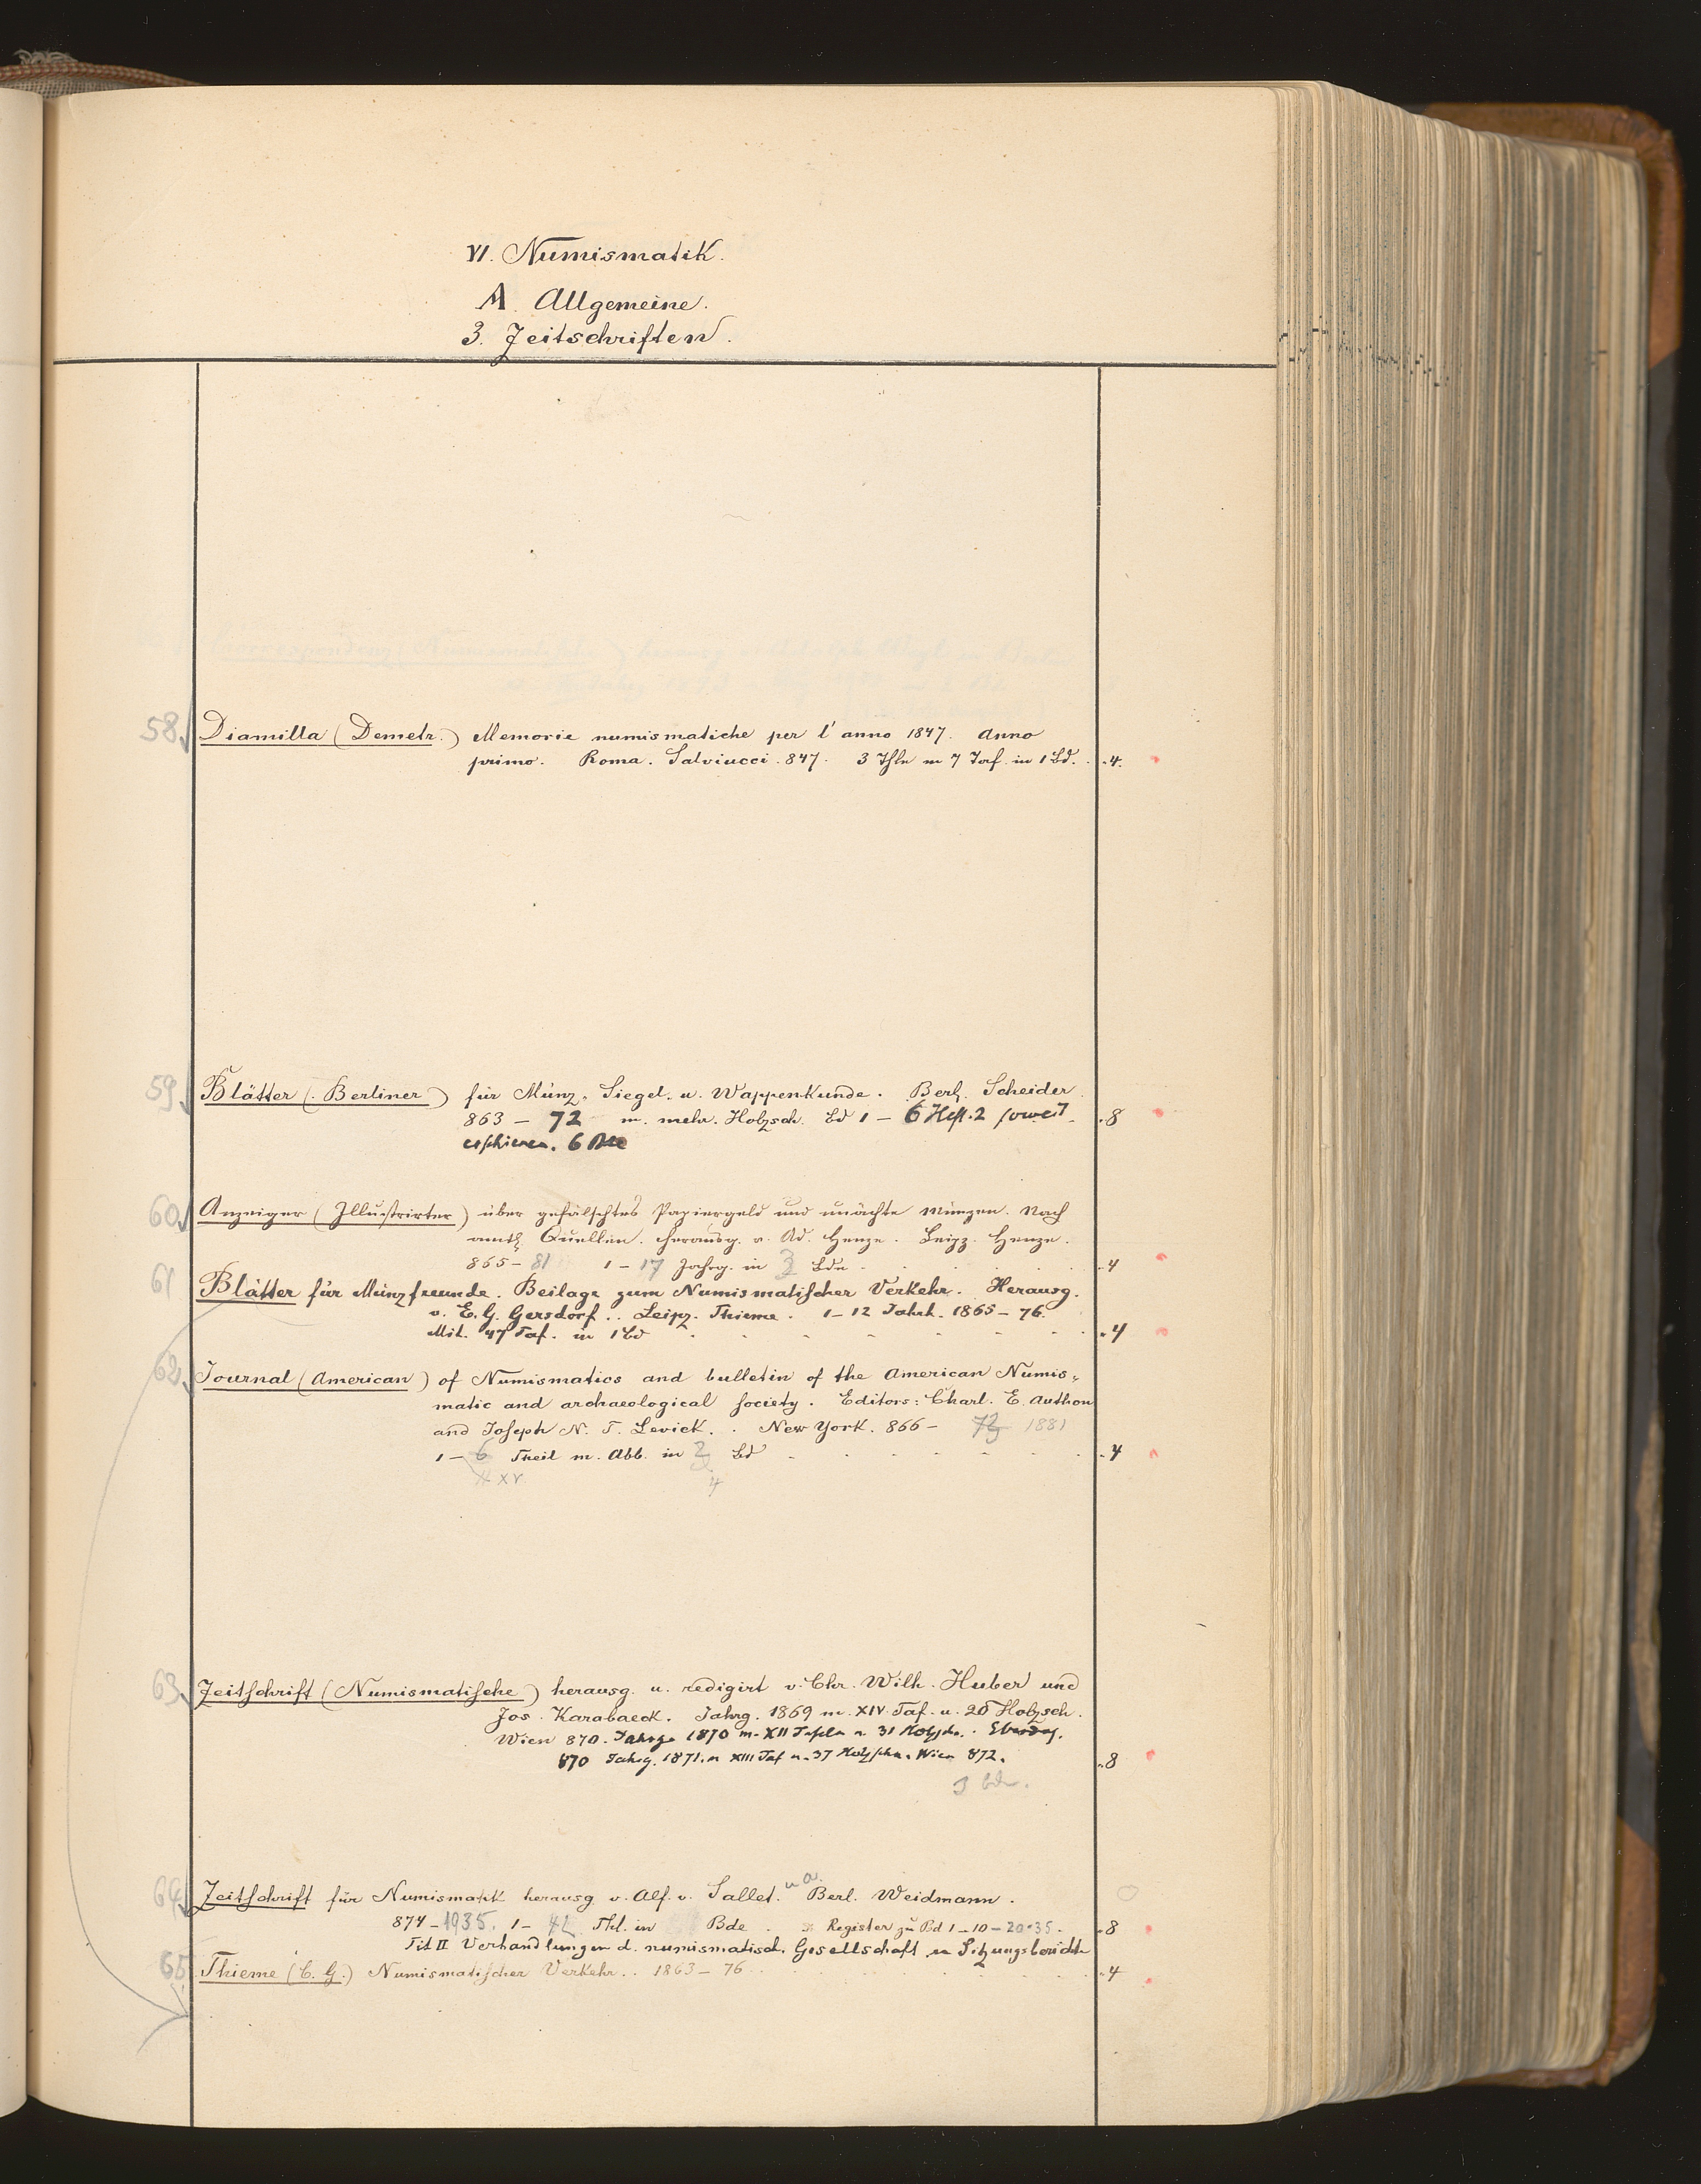 VI. Numismatik.
A. Allgemeine.
3. Zeitschriften.
58 Diamilla (Demetr.) Memorie numismatiche per l'anno 1847. Anno
primo. Roma. Salviucci. 847. 3 Thle m 7 Taf. in 1 Bd. 4.
59 Blätter (Berliner) für Münz-, Siegel- u. Wappenkunde. Berl. Scheider
863 – 72 m. mehr. Holzsch. Bd 1 – 6 Heft. 2 soweit 8
erschienen. 6 Bde
60 Anzeiger (Illustrirter) über gefälschtes Papiergeld und unächte Münzen. Nach
amtl. Quellen. herausg. v. Ad. Henze. Leipz. Henze.
865 – 81 1 – 17 Jahrg. in 3 Bdn 4
61 Blätter für Münzfreunde. Beilage zum Numismatischer Verkehr. Herausg.
v. E. G. Gersdorf.. Leipz. Thieme. 1 – 12 Jahrh. 1865 – 76.
Mit. 47 Taf. in 1 Bd 4
62 Journal (American) of Numismatics and bulletin of the American Numis-
matic and archaeological society. Editors: Charl. E. Anthon
and Joseph N. T. Levick. New York. 866 – 73 1881
1 – 6 Theil m. Abb. in Bd 4
XV 4
63 Zeitschrift (Numismatische) herausg. u. redigirt v. Chr. Wilh. Huber und
Jos. Karabacek. Jahrg. 1869 m. XIV Taf. u. 20 Holzsch.
Wien 870. Jahrg. 1870 m. XII Tafeln u. 31 Holzschn. Ebendas.
870 Jahrg. 1871. m XIII Taf u. 37 Holzschn. Wien 872. 8
3 Bde.
64 Zeitschrift für Numismatik herausg. v. Alf. v. Sallet. u. a. Berl. Weidmann.
874 – 1935. 1 – 42 Thl. in Bde Register zu Bd 1 – 10 – 20 · 35. 8
Tit II Verhandlungen d. numismatisch. Gesellschaft Sitzungsberichte
65 Thieme (C. G.) Numismatischer Verkehr.. 1863 – 76 4